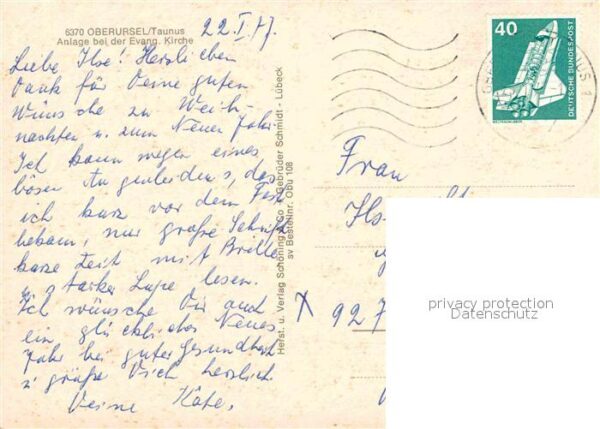 6370 OBERURSEL/Taunus
Anlage bei der Evang. Kirche
22.I.77.
Liebe Ilse! Herzlichen
Dank für Deine guten
Wünsche zu Weih-
nachten u. zum Neuen Jahr.
Ich kann wegen eines
bösen Augenleidens, das
ich kurz vor dem Fest
bekam, nur große Schrift
kurze Zeit mit Brille
u. starker Lupe lesen.
Ich wünsche Dir auch
ein glückliches Neues
Jahr bei guter Gesundheit
u. grüße Dich herzlich.
Deine Käte.
Herst. u. Verlag Schöning & Co + Gebrüder Schmidt - Lübeck
sv Bestellnr. Obu 108
40
DEUTSCHE BUNDESPOST
Frau
927
privacy protection
Datenschutz